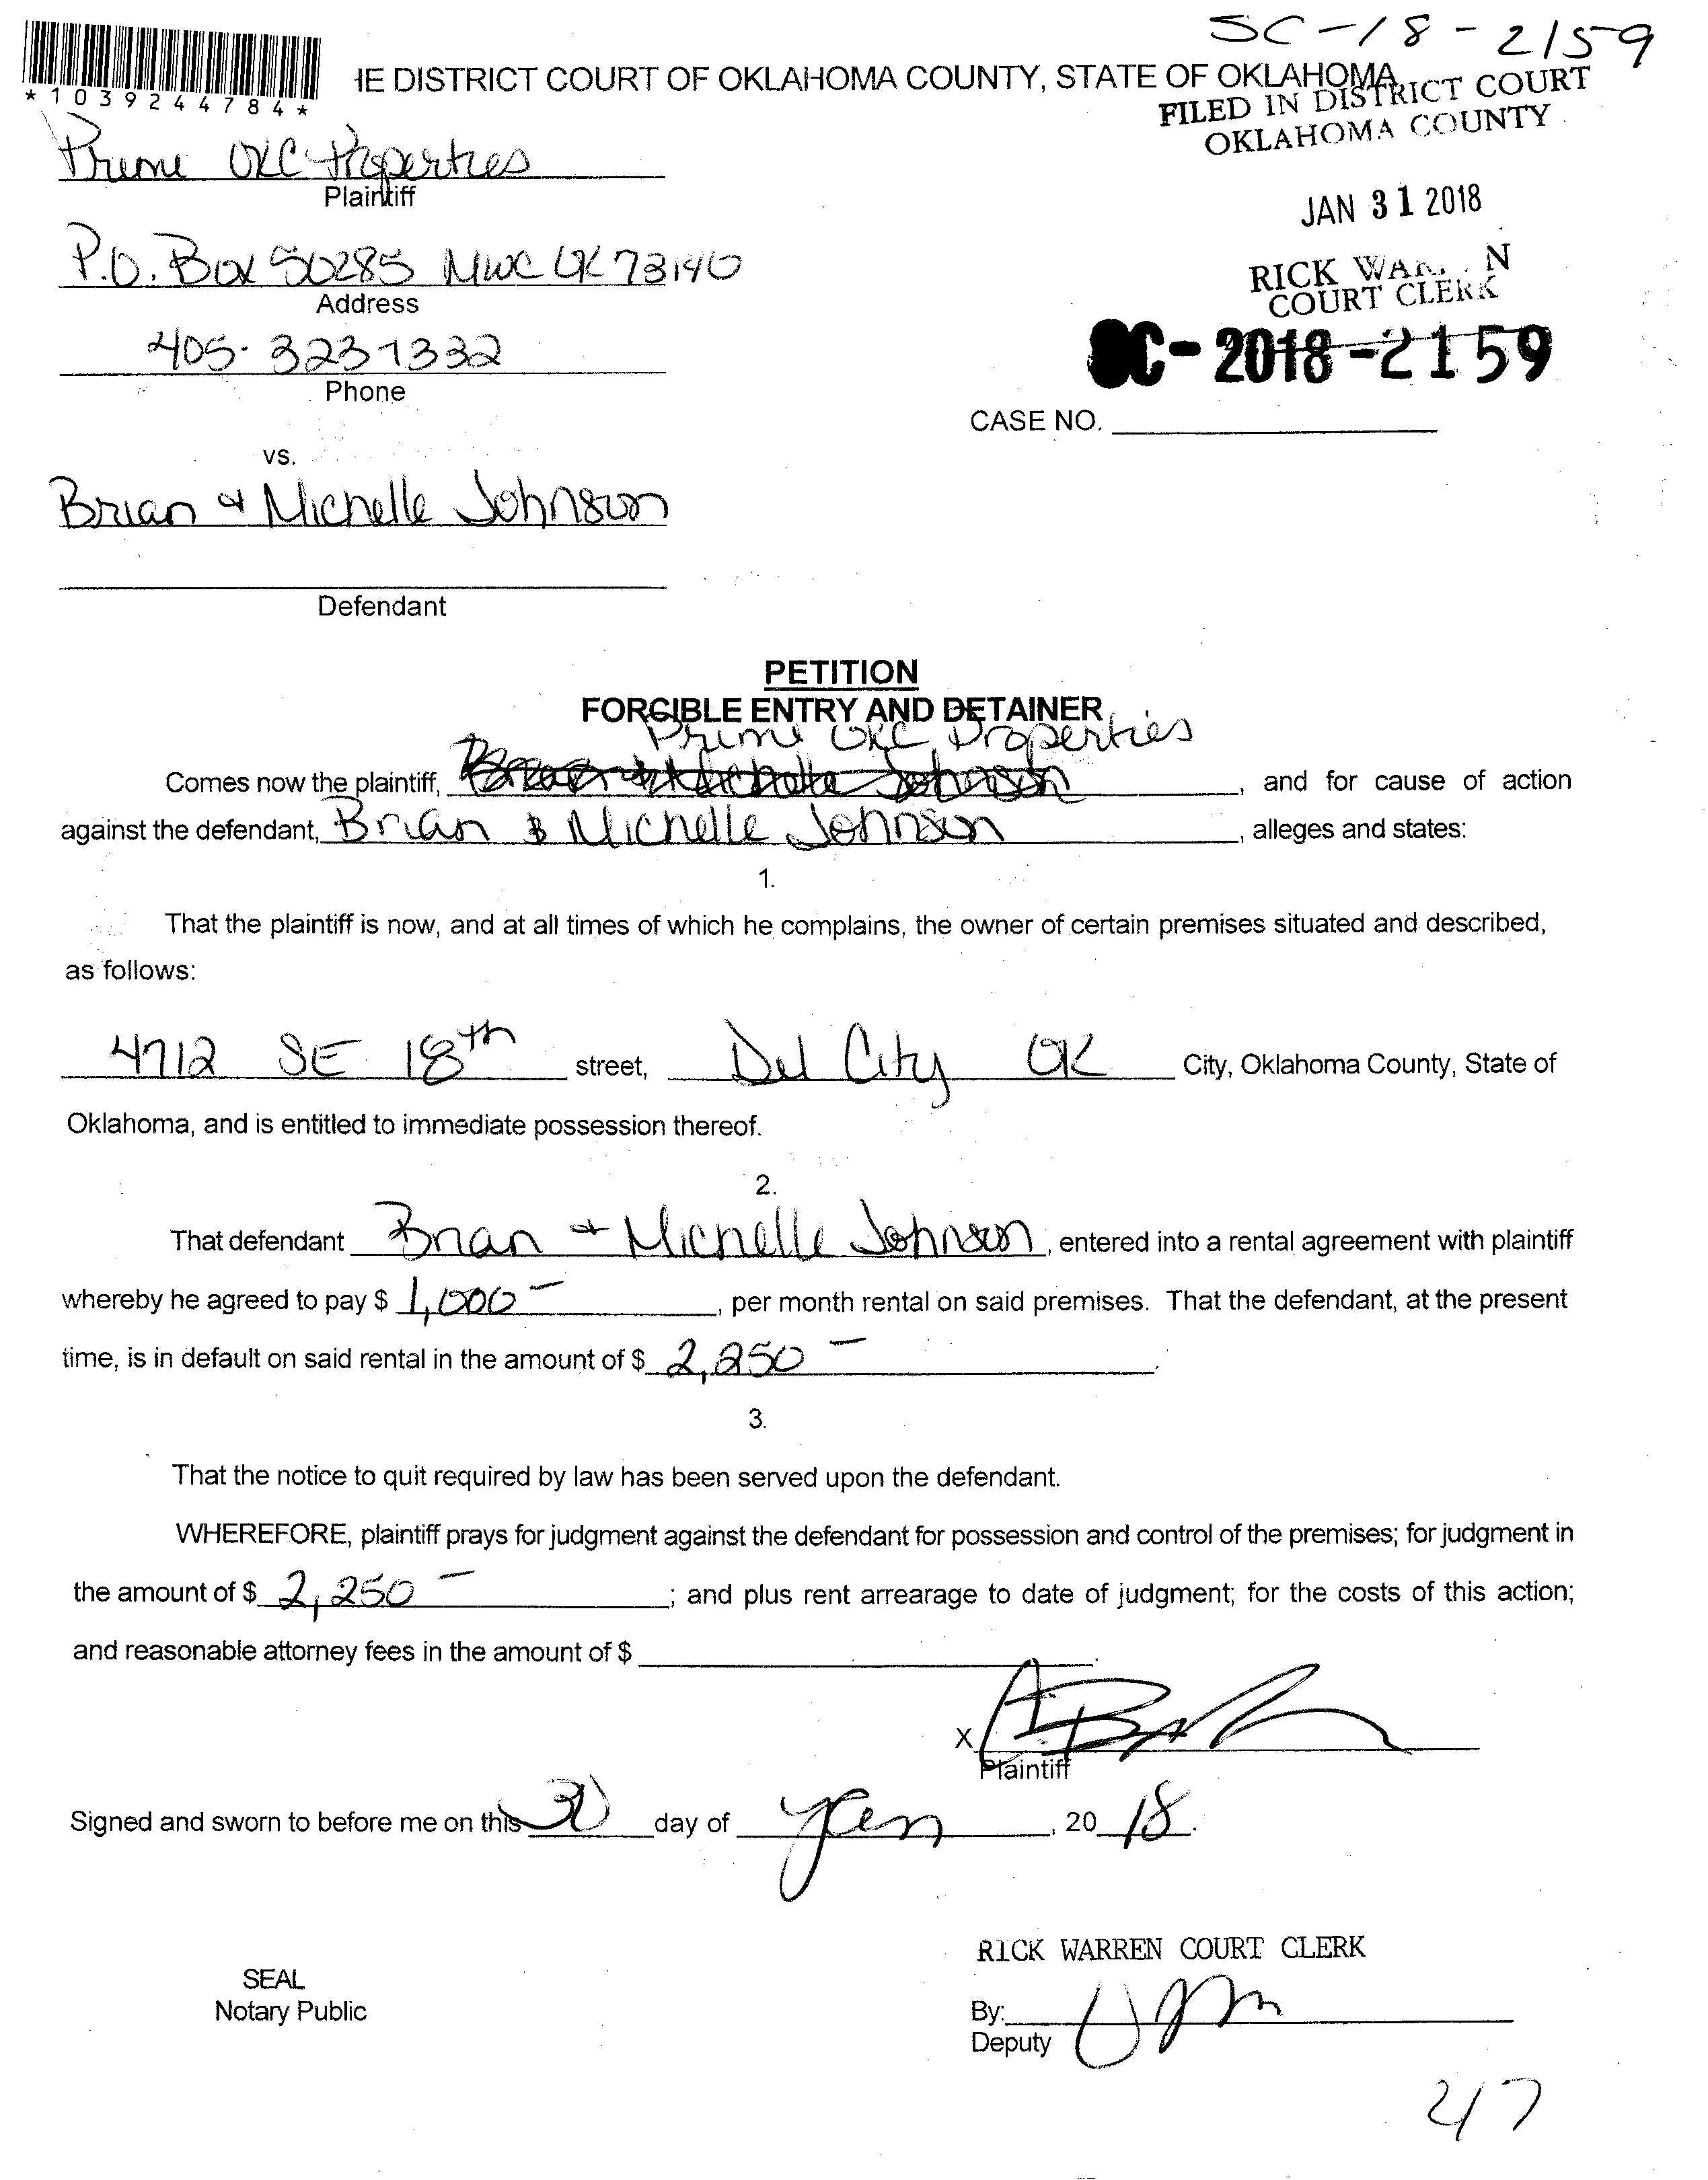 SC-18-2159
*1039244784*
HE DISTRICT COURT OF OKLAHOMA COUNTY, STATE OF OKLAHOMA
FILED IN DISTRICT COURT
OKLAHOMA COUNTY
Prime OKC Properties
Plaintiff
JAN 31 2018
P.O. Box 50285 MWC OK 73140
Address
RICK WAR N
COURT CLERK
405-3231332
Phone
SC-2018-2159
CASE NO.
vs.
Brian & Michelle Johnson
Defendant
PETITION
FORCIBLE ENTRY AND DETAINER
Prime OKC Properties
Comes now the plaintiff, Brian & Michelle Johnson, and for cause of action
against the defendant, Brian & Michelle Johnson, alleges and states:
1.
That the plaintiff is now, and at all times of which he complains, the owner of certain premises situated and described,
as follows:
4712 SE 18th street, Del City OK City, Oklahoma County, State of
Oklahoma, and is entitled to immediate possession thereof.
2.
That defendant Brian + Michelle Johnson, entered into a rental agreement with plaintiff
whereby he agreed to pay $ 1,000-, per month rental on said premises. That the defendant, at the present
time, is in default on said rental in the amount of $ 2,250-.
3.
That the notice to quit required by law has been served upon the defendant.
WHEREFORE, plaintiff prays for judgment against the defendant for possession and control of the premises; for judgment in
the amount of $ 2,250-; and plus rent arrearage to date of judgment; for the costs of this action;
and reasonable attorney fees in the amount of $ .
X
Plaintiff
Signed and sworn to before me on this 30 day of Jan, 2018.
RICK WARREN COURT CLERK
SEAL
Notary Public
By:
Deputy
217